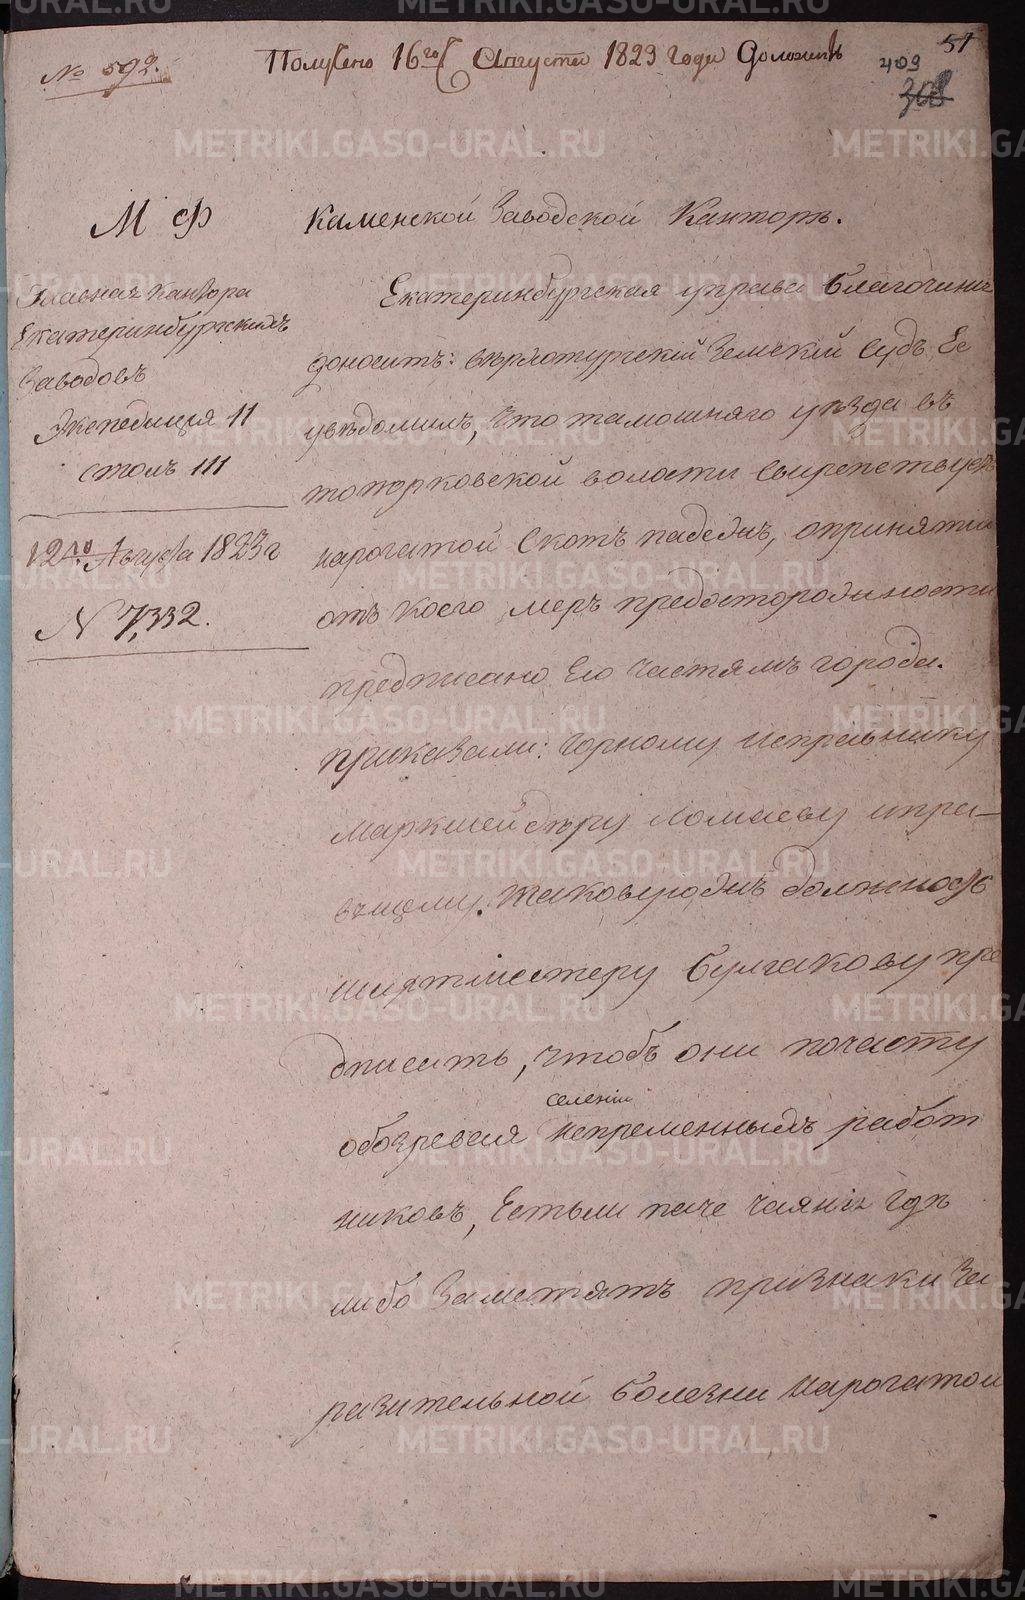 № 592.
Получено 16го Августа 1823 года Доложить
51
409
308
М Ф
Главная кантора
Екатеринбургскихъ
Заводовъ
Экспедиция II
столъ III
12го Августа 1823 г
N 7,332.
Каменской Заводской Канторѣ.
Екатеринбургская управа благочиния
доноситъ: верхотурский Земский Судъ Ее
увѣдомилъ, что тамошняго уѣзда въ
топорковской волости свирепствуетъ
нарогатой скотъ падежъ, опринятии
отъ коего меръ предосторожности
предписано Ею частямъ города.
приказали: горному исправнику
маркшейдеру Ломаеву ипра-
вящему таковуюжъ должность
шихтмейстеру Булгакову пре
дписать, чтобъ они почасту
обозревая селении непременныхъ работ
никовъ, Естьли паче чаяния гдѣ
либо Заметятъ признаки За
разительной болезни нарогатой
METRIKI.GASO-URAL.RU